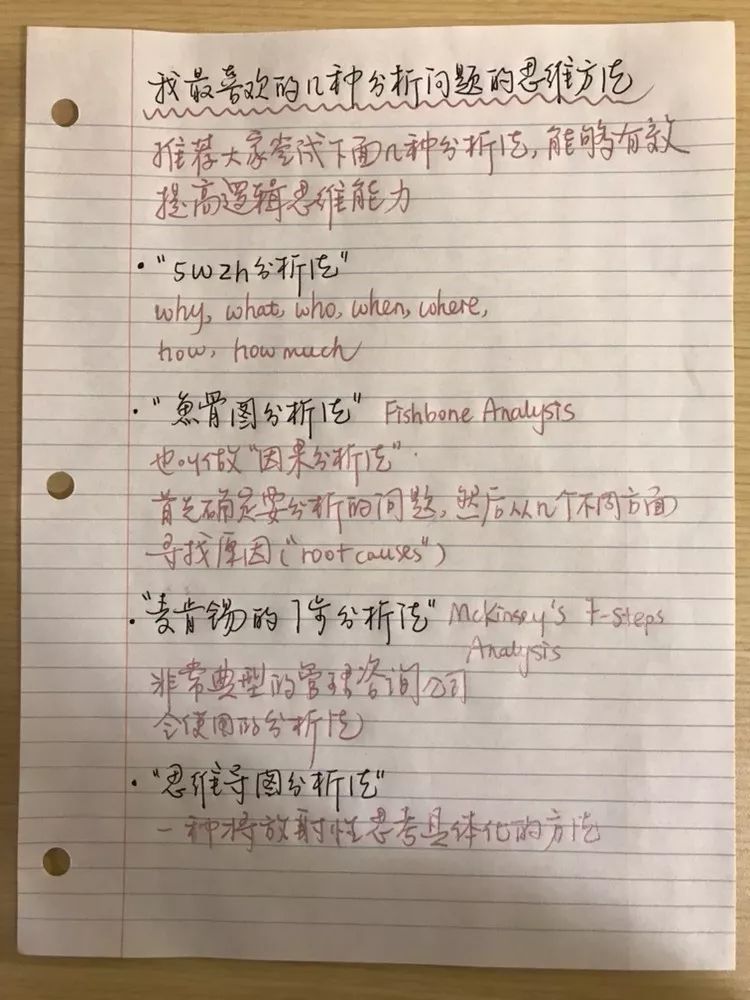 我最喜欢的几种分析问题的思维方法
推荐大家尝试下面几种分析法,能够有效
提高逻辑思维能力
·"5W2h分析法"
why, what, who, when, where,
how, how much
·"鱼骨图分析法" Fishbone Analysis
也叫做"因果分析法".
首先确定要分析的问题,然后从几个不同方面
寻找原因("root causes")
·"麦肯锡的7步分析法" Mckinsey's 7-Steps
Analysis
非常典型的管理咨询公司
会使用的分析法
·"思维导图分析法"
一种将放射性思考具体化的方法